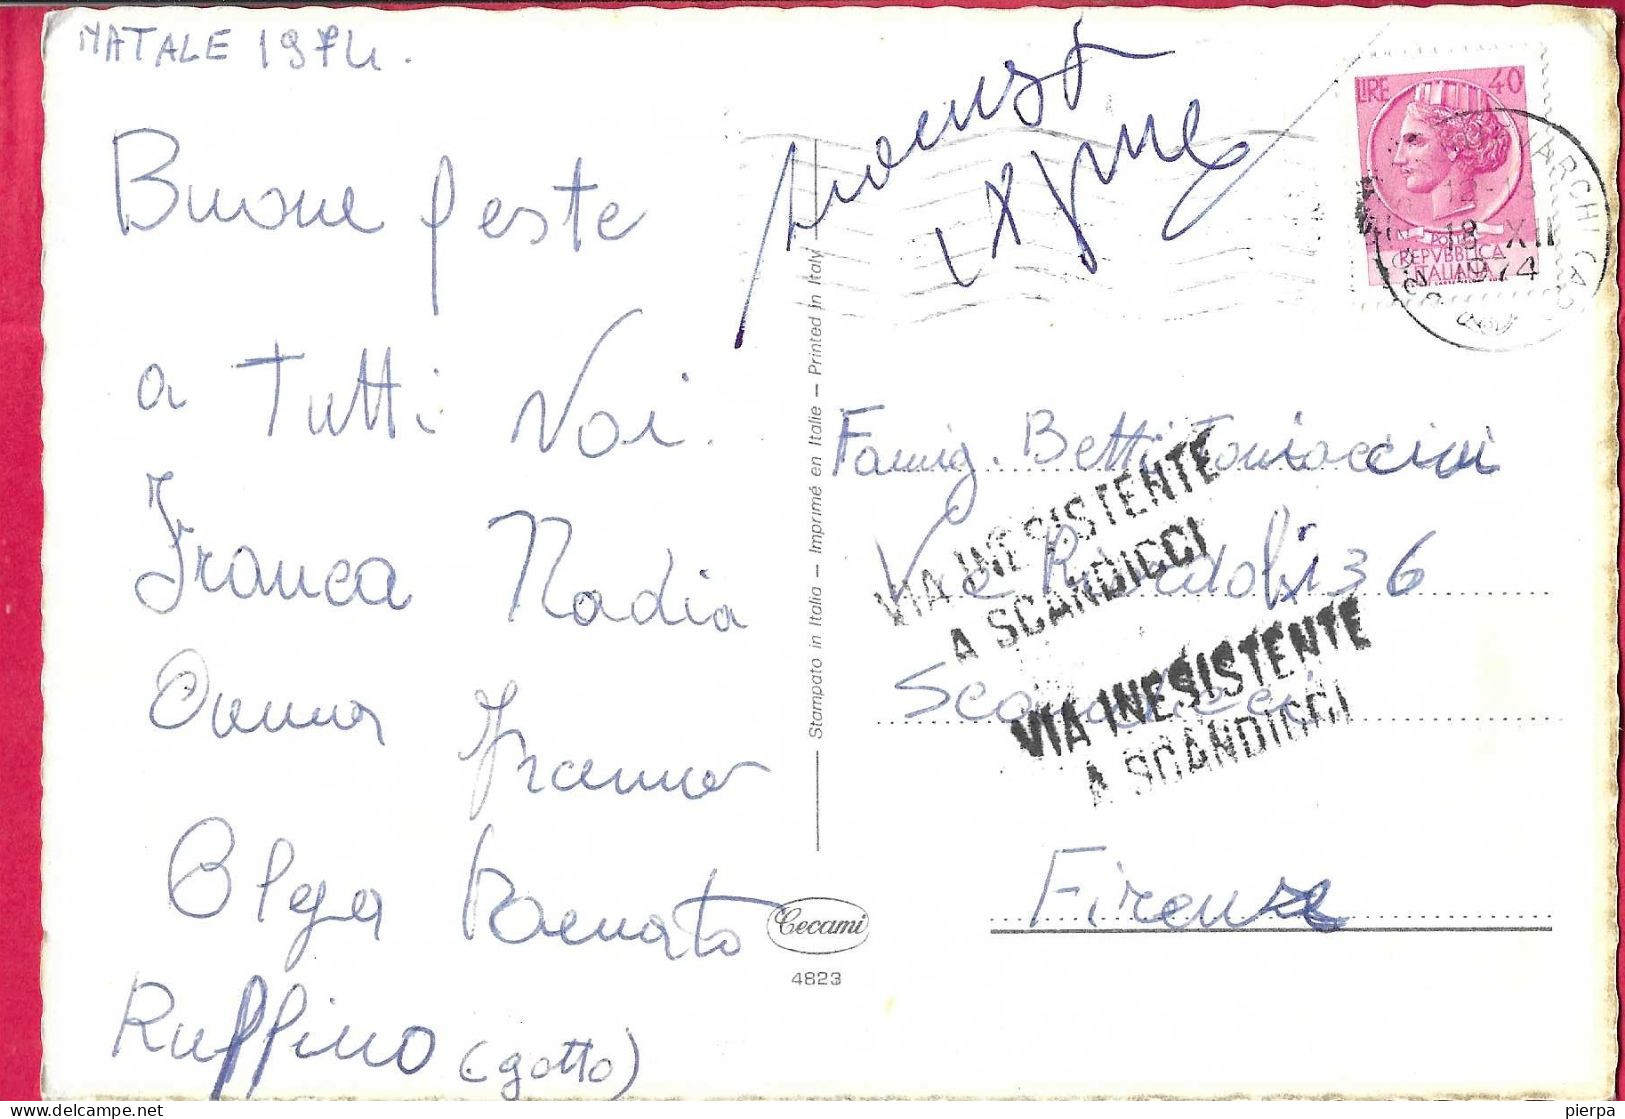 NATALE 1974.
Buone feste
a Tutti Voi.
Franca Nadia
Anna Franca
Olga Renato
Ruffino (gotto)
Stampato in Italia – Imprimé en Italie – Printed in Italy
Cecami
4823
LIRE 40
POSTE
REPVBBLICA
ITALIANA
18 XII
1974
Famig. Betti Toniaccini
Via 136
Scandicci
Firenze
VIA INESISTENTE
A SCANDICCI
VIA INESISTENTE
A SCANDICCI
pierpa